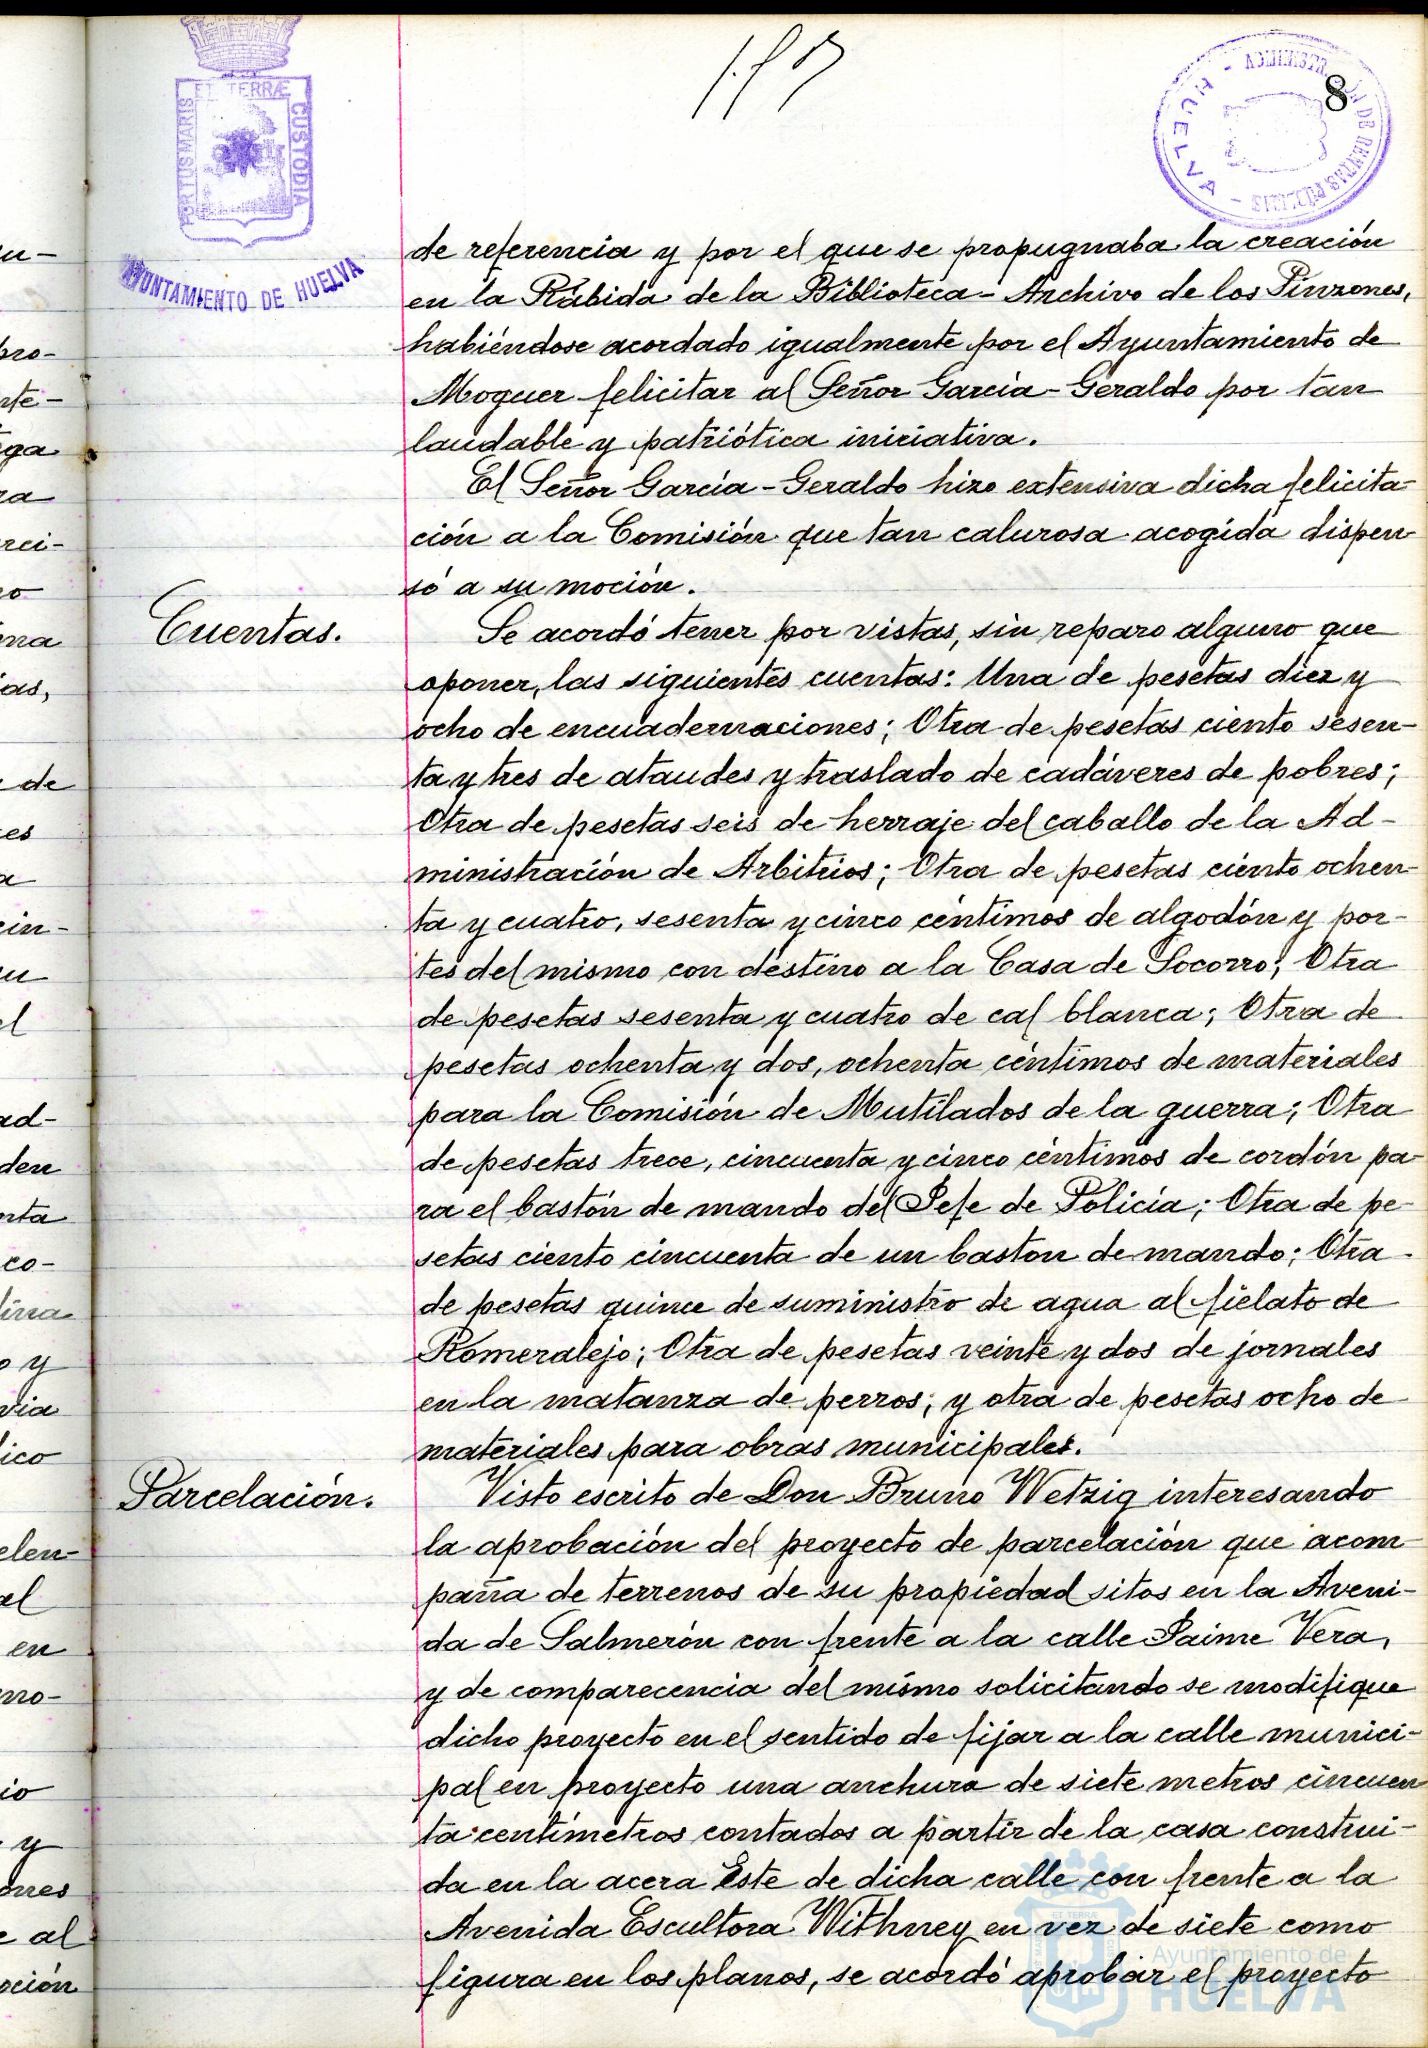 8
PORTUS MARIS ET TERRÆ CUSTODIA
AYUNTAMIENTO DE HUELVA
HUELVA
de referencia y por el que se propugnaba la creación
en la Rábida de la Biblioteca-Archivo de los Pinzones,
habiéndose acordado igualmente por el Ayuntamiento de
Moguer felicitar al Señor García-Geraldo por tan
laudable y patriótica iniciativa.
El Señor García-Geraldo hizo extensiva dicha felicita-
ción a la Comisión que tan calurosa acogida dispen-
só a su moción.
Cuentas.
Se acordó tener por vistas, sin reparo alguno que
oponer, las siguientes cuentas: Una de pesetas diez y
ocho de encuadernaciones; Otra de pesetas ciento sesen-
ta y tres de ataudes y traslado de cadáveres de pobres;
Otra de pesetas seis de herraje del caballo de la Ad-
ministración de Arbitrios; Otra de pesetas ciento ochen-
ta y cuatro, sesenta y cinco céntimos de algodón y por-
tes del mismo con destino a la Casa de Socorro; Otra
de pesetas sesenta y cuatro de cal blanca; Otra de
pesetas ochenta y dos, ochenta céntimos de materiales
para la Comisión de Mutilados de la guerra; Otra
de pesetas trece, cincuenta y cinco céntimos de cordón pa-
ra el bastón de mando del Jefe de Policía; Otra de pe-
setas ciento cincuenta de un baston de mando; Otra
de pesetas quince de suministro de agua al fielato de
Romeralejo; Otra de pesetas veinte y dos de jornales
en la matanza de perros; y otra de pesetas ocho de
materiales para obras municipales.
Parcelación.
Visto escrito de Don Bruno Wetzig interesando
la aprobación del proyecto de parcelación que acom-
paña de terrenos de su propiedad sitos en la Aveni-
da de Salmerón con frente a la calle Jaime Vera,
y de comparecencia del mismo solicitando se modifique
dicho proyecto en el sentido de fijar a la calle munici-
pal en proyecto una anchura de siete metros cincuen
ta centímetros contados a partir de la casa construi-
da en la acera Este de dicha calle con frente a la
Avenida Escultora Withney en vez de siete como
figura en los planos, se acordó aprobar el proyecto
Ayuntamiento de
HUELVA